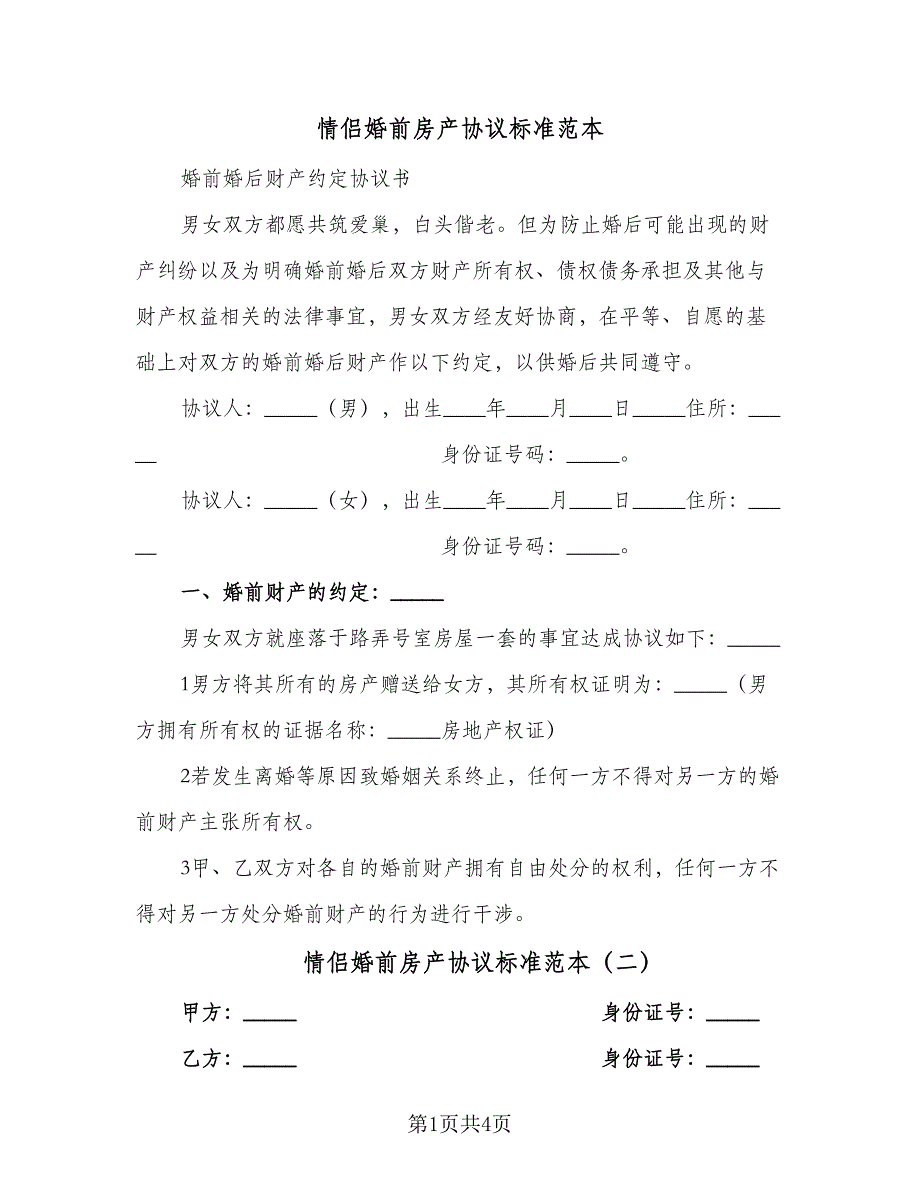 情侣婚前房产协议标准范本
婚前婚后财产约定协议书
男女双方都愿共筑爱巢，白头偕老。但为防止婚后可能出现的财
产纠纷以及为明确婚前婚后双方财产所有权、债权债务承担及其他与
财产权益相关的法律事宜，男女双方经友好协商，在平等、自愿的基
础上对双方的婚前婚后财产作以下约定，以供婚后共同遵守。
协议人：_____（男），出生____年____月____日_____住所：___
__ 身份证号码：_____。
协议人：_____（女），出生____年____月____日_____住所：___
__ 身份证号码：_____。
一、婚前财产的约定：_____
男女双方就座落于路弄号室房屋一套的事宜达成协议如下：_____
1男方将其所有的房产赠送给女方，其所有权证明为：_____（男
方拥有所有权的证据名称：_____房地产权证）
2若发生离婚等原因致婚姻关系终止，任何一方不得对另一方的婚
前财产主张所有权。
3甲、乙双方对各自的婚前财产拥有自由处分的权利，任何一方不
得对另一方处分婚前财产的行为进行干涉。
情侣婚前房产协议标准范本（二）
甲方：_____ 身份证号：_____
乙方：_____ 身份证号：_____
第1页共4页